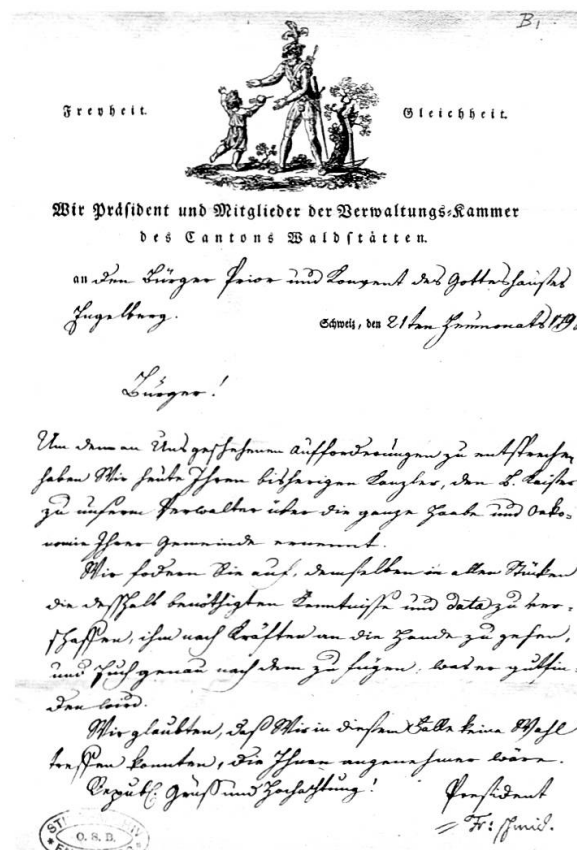 B,
Freyheit. Gleichheit.
Wir Präsident und Mitglieder der Verwaltungs-Kammer
des Cantons Waldstätten.
an den Bürger Prior und Konvent des Gotteshauses
Engelberg. Schweiz, den 21ten Heümonats 179
Bürger!
Um dem an Uns geschehenen Aüfforderüngen zu entsprechen,
haben Wir heüte Ihren bisherigen Kanzler, den B. Kaiser
zu unserm Verwalter über die ganze Haabe und Oeko-
nomie Ihrer Gemeinde ernennt.
Wir fodern Sie auf, demselben in allen Stücken
die desshalb benöthigten Kenntnisse und data zu ver-
schaffen, ihm nach Kräften an die Hande zu gehen,
und sich genau nach dem zu fügen, was er gutfin-
den wird.
Wir glaubten, daß Wir in diesem Falle keine Wahl
treffen konnten, die Ihnen angenehmer wäre.
Republ. Grüß und Hochachtung! President
Fr: Schmid.
O. S. B.